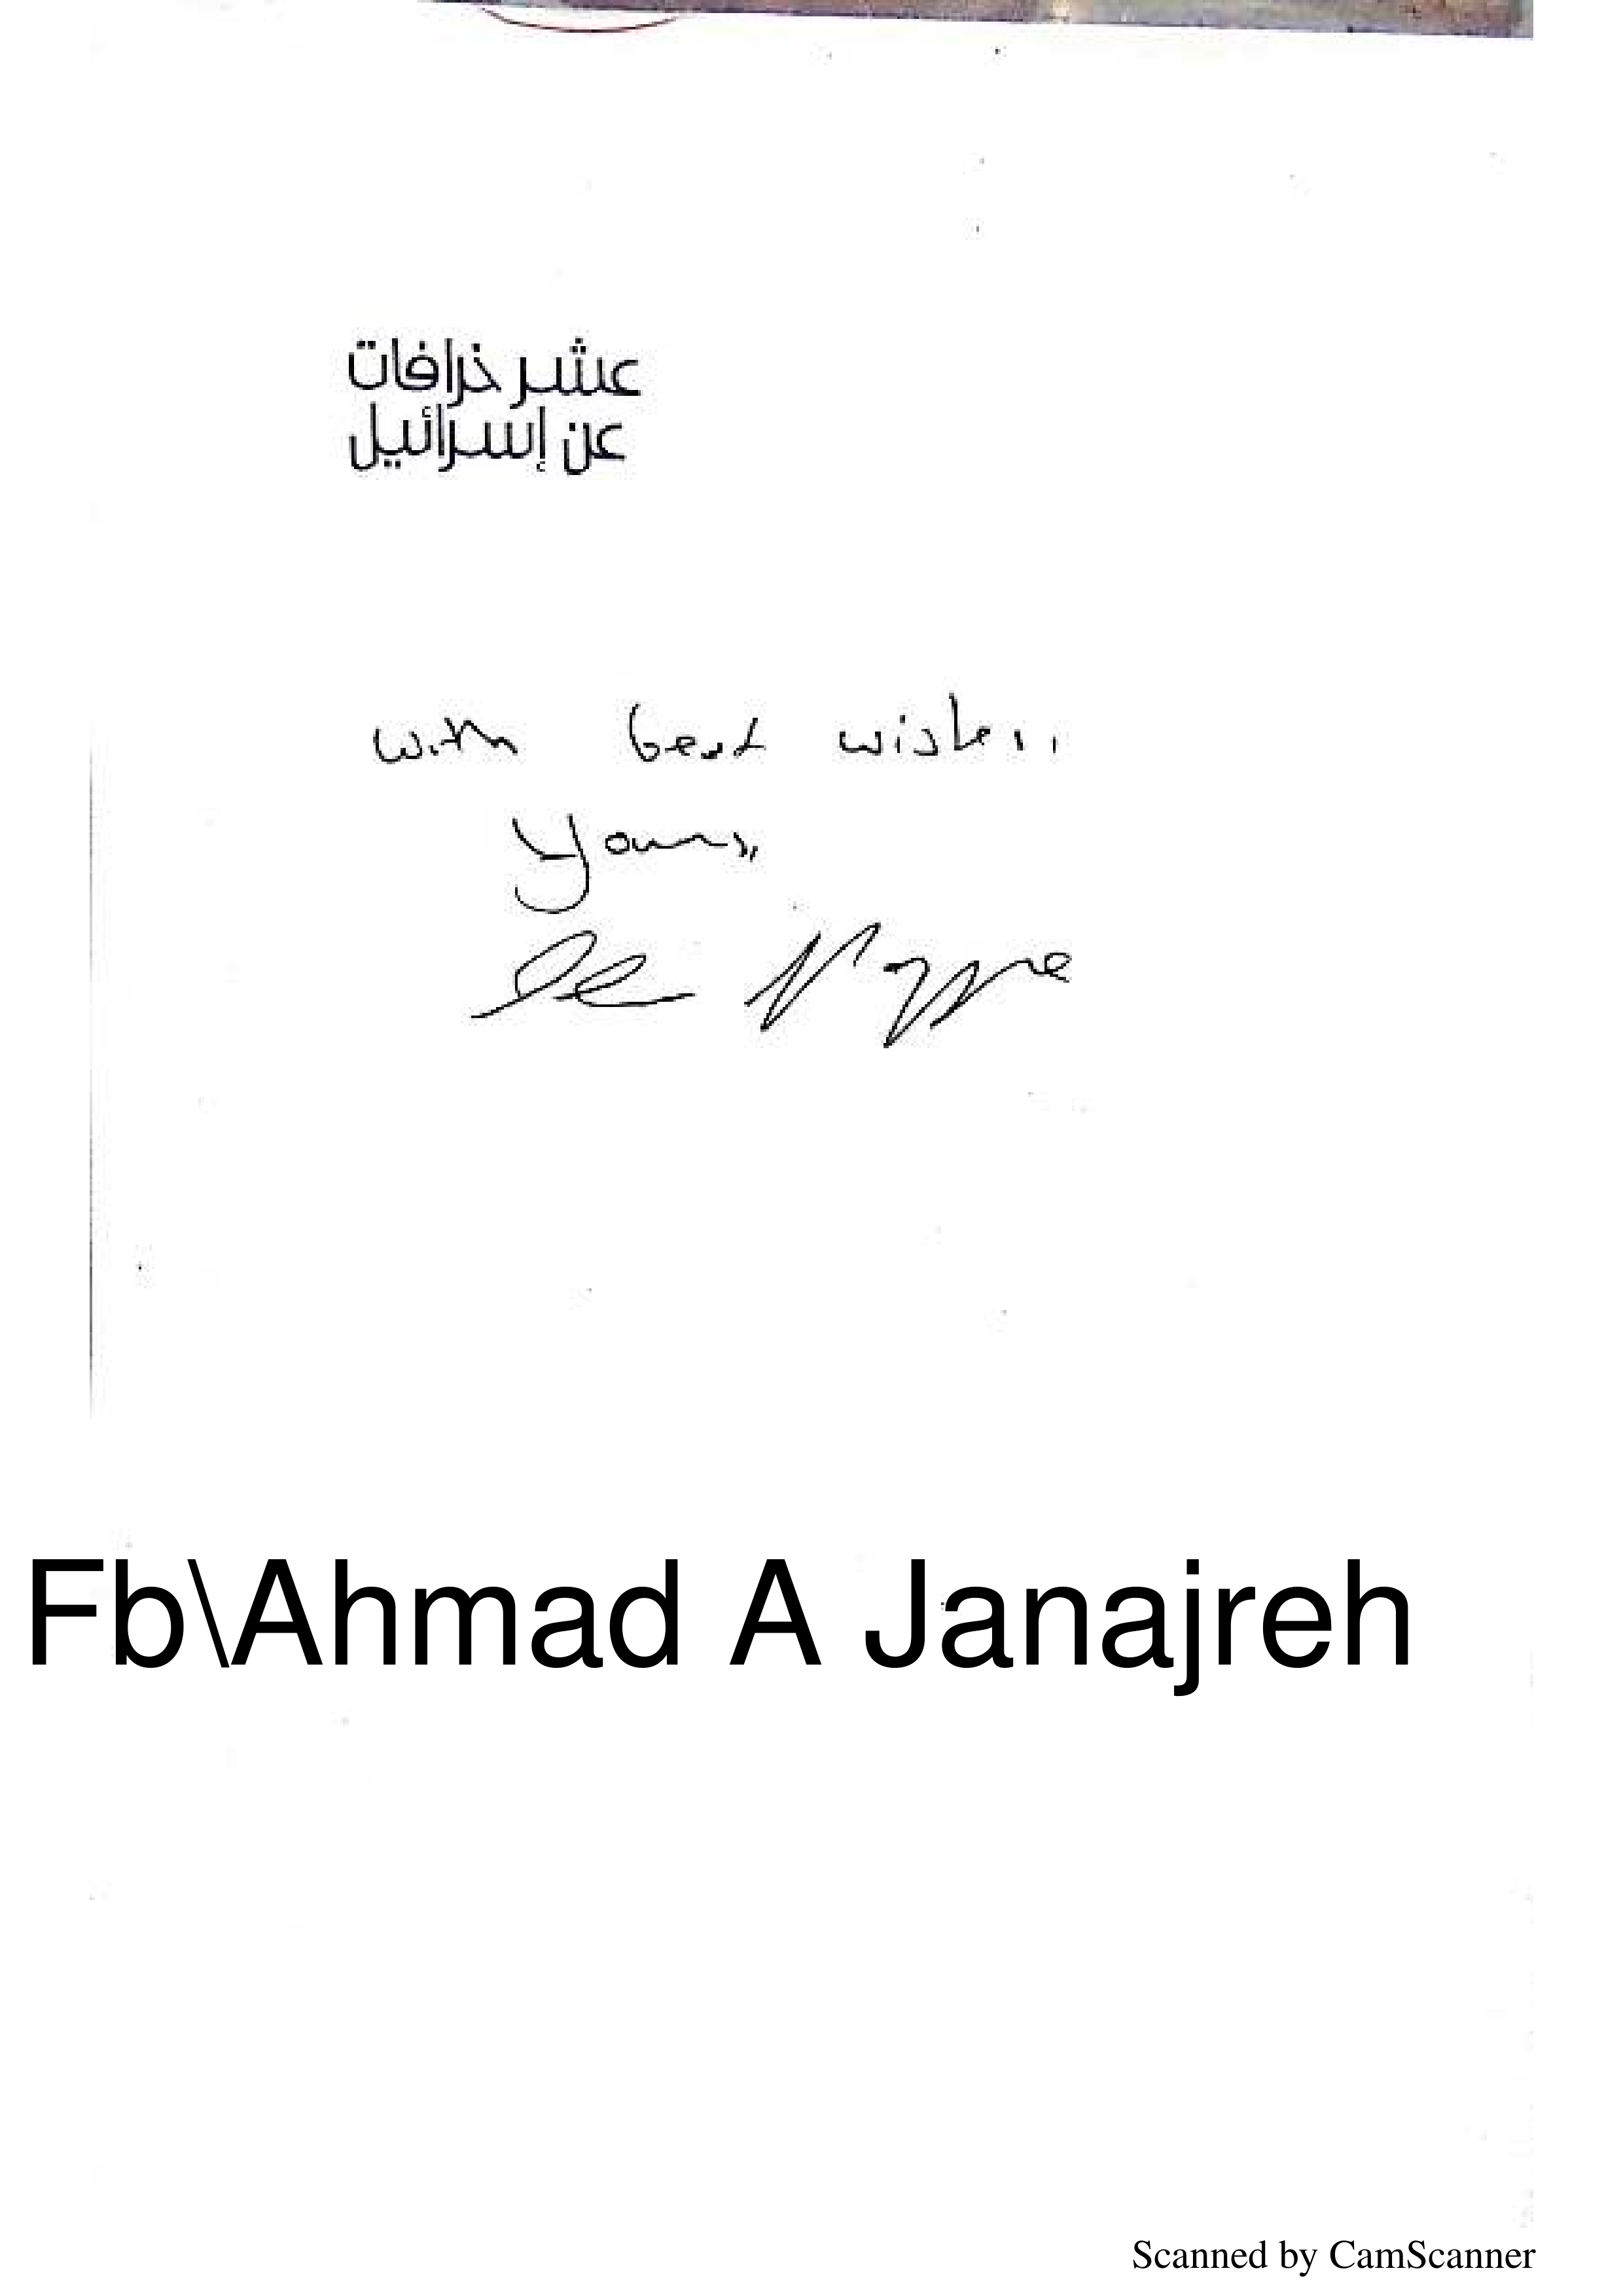 عشر خرافات
عن إسرائيل
with best wishes,
Yours,
Ilan Pappe
Fb\Ahmad A Janajreh
Scanned by CamScanner